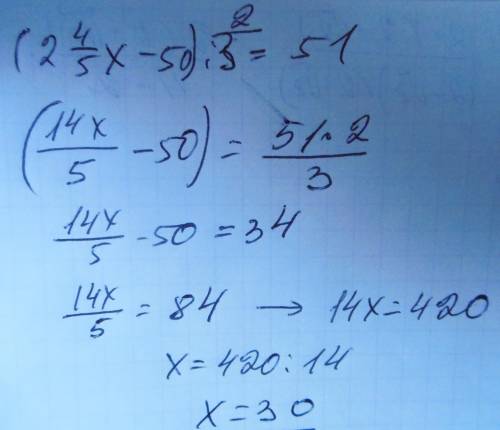 (2 4/5 x - 50) : 2/3 = 51
(14x/5 - 50) = 51·2/3
14x/5 - 50 = 34
14x/5 = 84 → 14x = 420
x = 420 : 14
x = 30